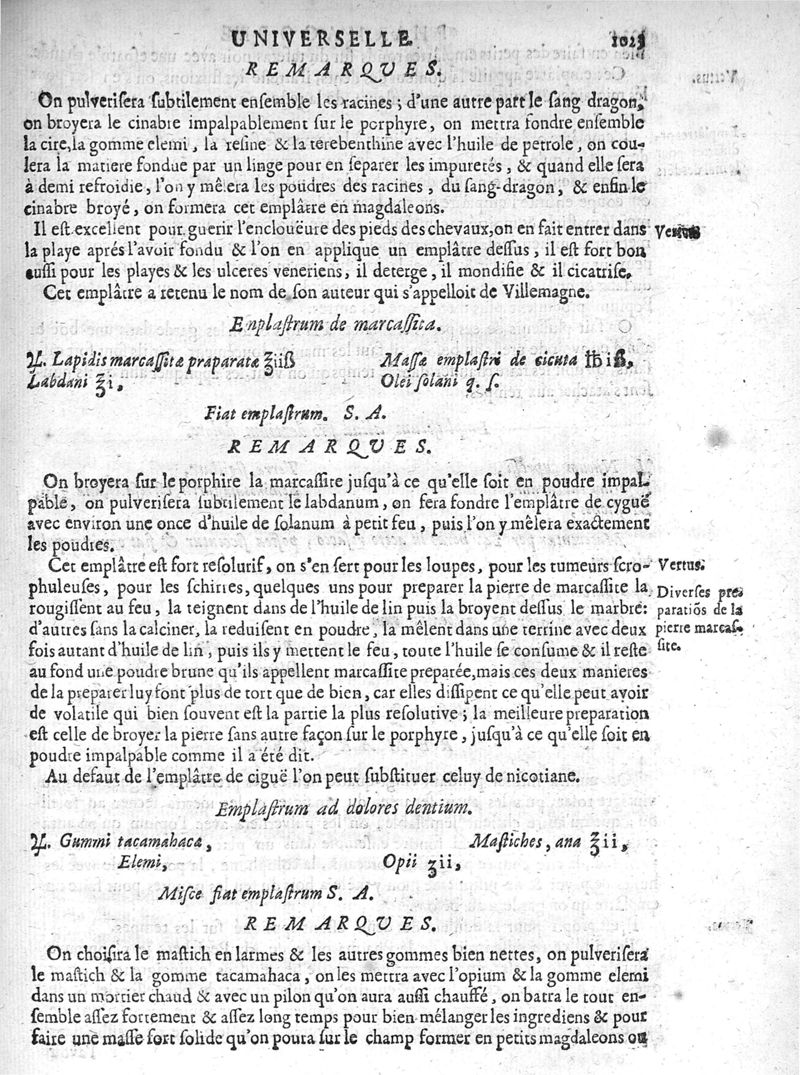 UNIVERSELLE. 1023
REMARQUES.
On pulveriſera ſubtilement enſemble les racines ; d'une autre part le ſang dragon,
on broyera le cinabre impalpablement ſur le porphyre, on mettra fondre enſemble
la cire, la gomme elemi, la reſine & la terebenthine avec l'huile de petrole, on cou-
lera la matiere fondue par un linge pour en ſeparer les impuretés, & quand elle ſera
à demi refroidie, l'on y mêlera les poudres des racines, du ſang-dragon, & enfin le
cinabre broyé, on formera cet emplâtre en magdaleons.
Il eſt excellent pour guerir l'encloueüre des pieds des chevaux, on en fait entrer dans
Vertus
la playe aprés l'avoir fondu & l'on en applique un emplâtre deſſus, il eſt fort bon
auſſi pour les playes & les ulceres veneriens, il deterge, il mondifie & il cicatriſe.
Cet emplâtre a retenu le nom de ſon auteur qui s'appelloit de Villemagne.
Enplaſtrum de marcaſſita.
♃. Lapidis marcaſſitæ præparatæ ℥iiß Maſſæ emplaſtri de cicuta ℔iß,
Labdani ℥i, Olei ſolani q. ſ.
Fiat emplaſtrum. S. A.
REMARQUES.
On broyera ſur le porphire la marcaſſite juſqu'à ce qu'elle ſoit en poudre impal-
pable, on pulveriſera ſubtilement le labdanum, on fera fondre l'emplâtre de cyguë
avec environ une once d'huile de ſolanum à petit feu, puis l'on y mêlera exactement
les poudres.
Cet emplâtre eſt fort reſolutif, on s'en ſert pour les loupes, pour les tumeurs ſcro-
Vertus.
phuleuſes, pour les ſchirres, quelques uns pour preparer la pierre de marcaſſite la
rougiſſent au feu, la teignent dans de l'huile de lin puis la broyent deſſus le marbre:
d'autres ſans la calciner, la reduiſent en poudre, la mêlent dans une terrine avec deux
fois autant d'huile de lin, puis ils y mettent le feu, toute l'huile ſe conſume & il reſte
Diverſes pre
paratiõs de la
pierre marcaſ-
ſite.
au fond une poudre brune qu'ils appellent marcaſſite preparée, mais ces deux manieres
de la preparer luy font plus de tort que de bien, car elles diſſipent ce qu'elle peut avoir
de volatile qui bien ſouvent eſt la partie la plus reſolutive ; la meilleure preparation
eſt celle de broyer la pierre ſans autre façon ſur le porphyre, juſqu'à ce qu'elle ſoit en
poudre impalpable comme il a été dit.
Au defaut de l'emplâtre de ciguë l'on peut ſubſtituer celuy de nicotiane.
Emplaſtrum ad dolores dentium.
♃. Gummi tacamahaca, Maſtiches, ana ℥ii,
Elemi, Opii ʒii,
Miſce fiat emplaſtrum S. A.
REMARQUES.
On choiſira le maſtich en larmes & les autres gommes bien nettes, on pulveriſera
le maſtich & la gomme tacamahaca, on les mettra avec l'opium & la gomme elemi
dans un mortier chaud & avec un pilon qu'on aura auſſi chauffé, on batra le tout en-
ſemble aſſez fortement & aſſez long temps pour bien mélanger les ingrediens & pour
faire une maſſe fort ſolide qu'on poura ſur le champ former en petits magdaleons ou